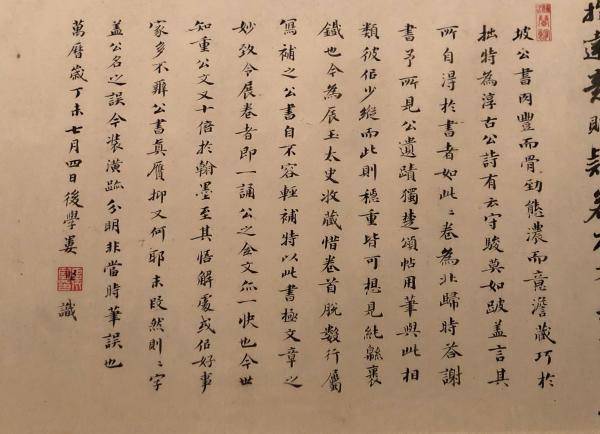 坡公書肉豐而骨勁態濃而意澹藏巧於
拙特為淳古公詩有云守駿莫如跛蓋言其
所自淂於書者如此〻卷為北歸時答謝
書予所見公遺蹟獨楚頌帖用筆與此相
類彼佀少縱而此則穩重皆可想見純緜裹
鐵也今為辰玉太史收藏惜卷首脫數行屬
寫補之公書自不容輕補特以此書極文章之
妙致令展卷者即一誦公之全文亦一快也今世
知重公文又十倍於翰墨至其悟解處或佀好事
家多不辨公書真贗抑又何耶末段然則二字
蓋公名之誤今裝潢跡分明非當時筆誤也
萬曆歲丁未七月四日後學婁 識